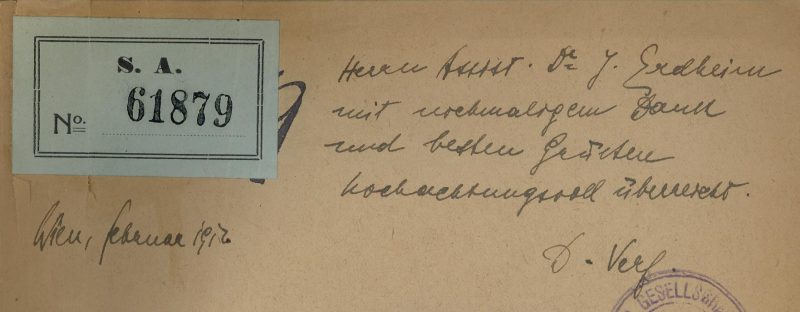 S. A.
No. 61879
Herrn Assist. Dr J. Erdheim
mit nochmaligem Dank
und besten Grüssen
hochachtungsvoll überreicht.
Wien, Februar 1912
D. Verf.
GESELLSCHA